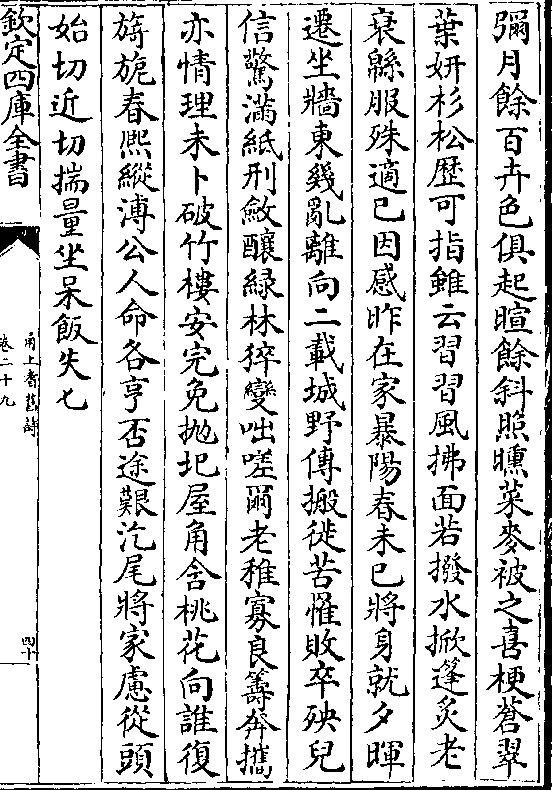 彌月餘百卉色俱起暄餘斜照曛菜麥被之喜梗蒼翠
葉妍杉松歴可指雖云習習風拂面若撥水掀蓬炙老
衰緜服殊適已因感昨在家暴陽春未已將身就夕暉
遷坐牆東幾亂離向二載城野傳搬徙苦罹敗卒殃兒
信驚滿紙刑斂釀緑林猝變咄嗟爾老稚寡良籌奔攜
亦情理未卜破竹樓安完免抛圯屋角含桃花向誰復
旖旎春熙縱溥公人命各亨否途艱汔尾將家慮從頭
始切近切揣量坐呆飯失匕
欽定四庫全書
甬上耆舊詩
卷二十九
四十